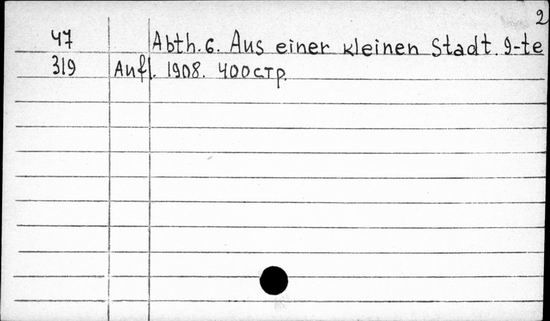 2
47 Abth. 6. Aus einer kleinen Stadt. 9-te
319 Aufl. 1908. 400 стр.